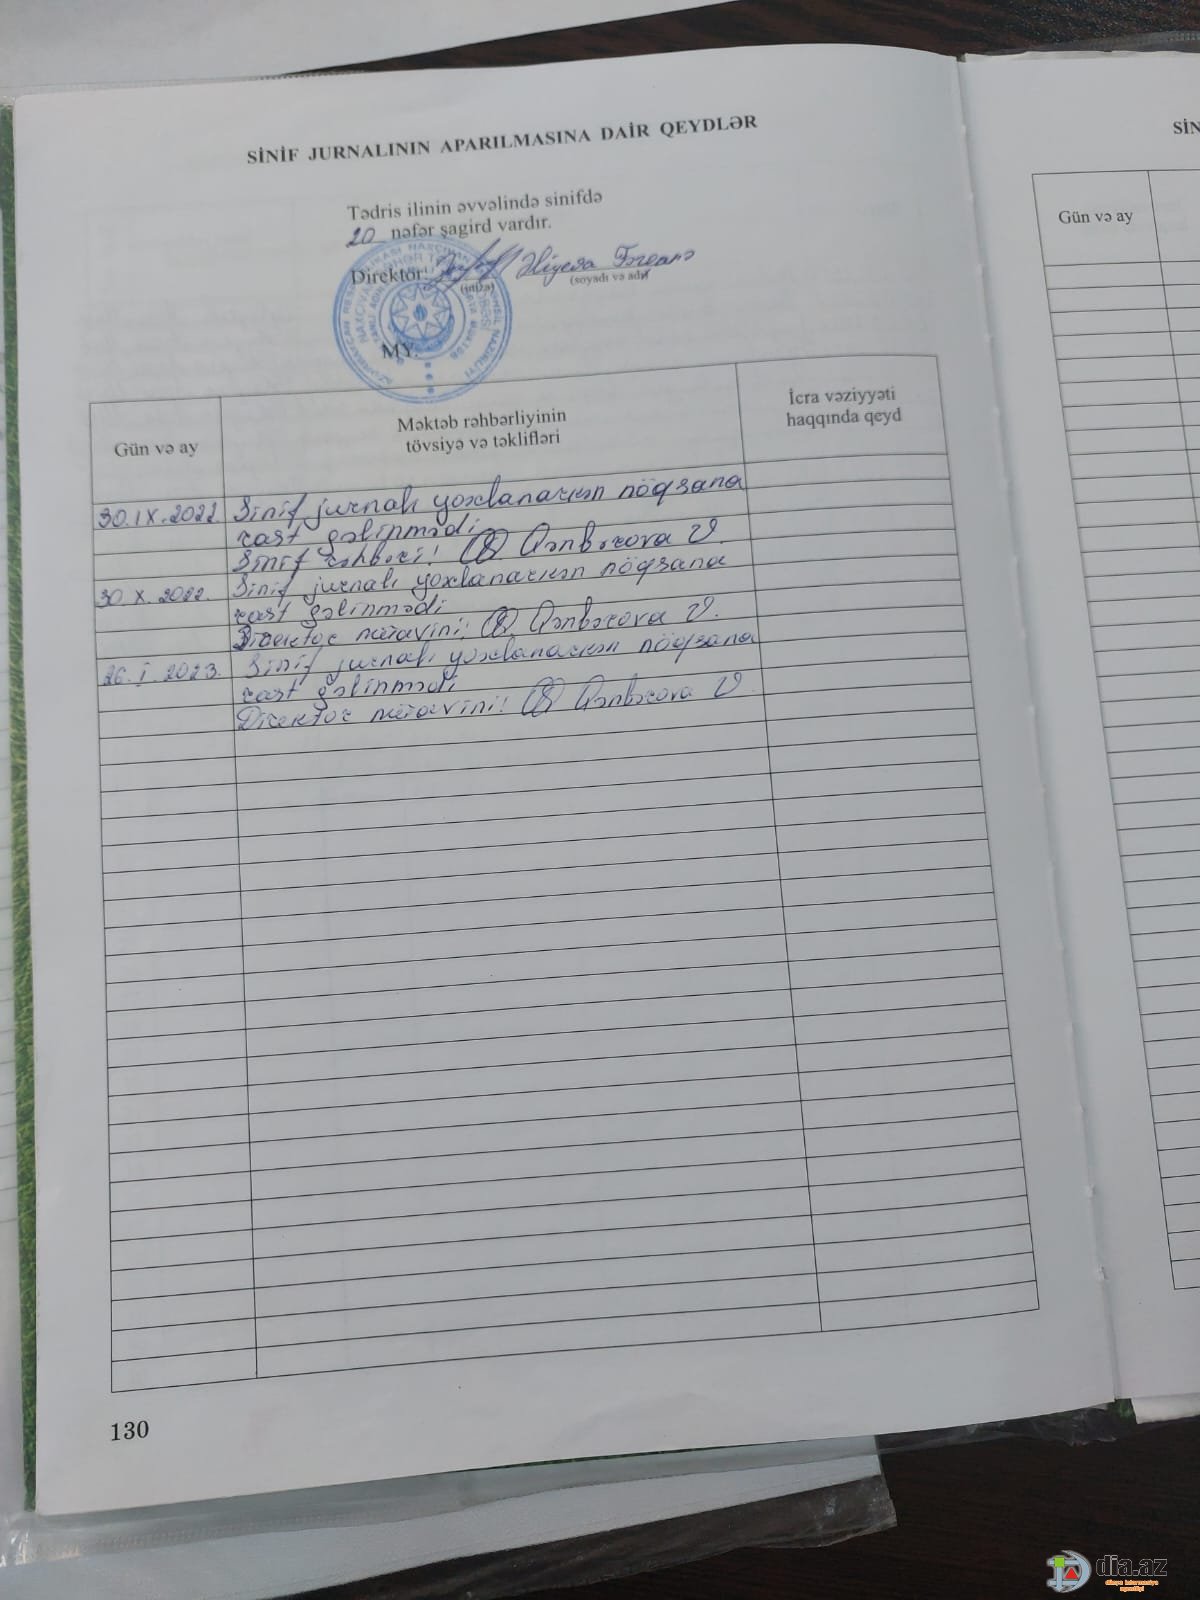 SİNİF JURNALININ APARILMASINA DAİR QEYDLƏR
Tədris ilinin əvvəlində sinifdə
20 nəfər şagird vardır.
Direktor: Əliyeva Fərqanə
(imza) (soyadı və adı)
MY.
Gün və ay
Məktəb rəhbərliyinin
tövsiyə və təklifləri
İcra vəziyyəti
haqqında qeyd
30.IX.2022. Sinif jurnalı yoxlanarkən nöqsana
rast gəlinmədi
Sinif rəhbəri: Qənbərova V.
30.X.2022. Sinif jurnalı yoxlanarkən nöqsana
rast gəlinmədi
Direktor müavini: Qənbərova V.
26.I.2023. Sinif jurnalı yoxlanarkən nöqsana
rast gəlinmədi
Direktor müavini: Qənbərova V.
130
SİN
Gün və ay
dia.az
dünya informasiya
agentliyi